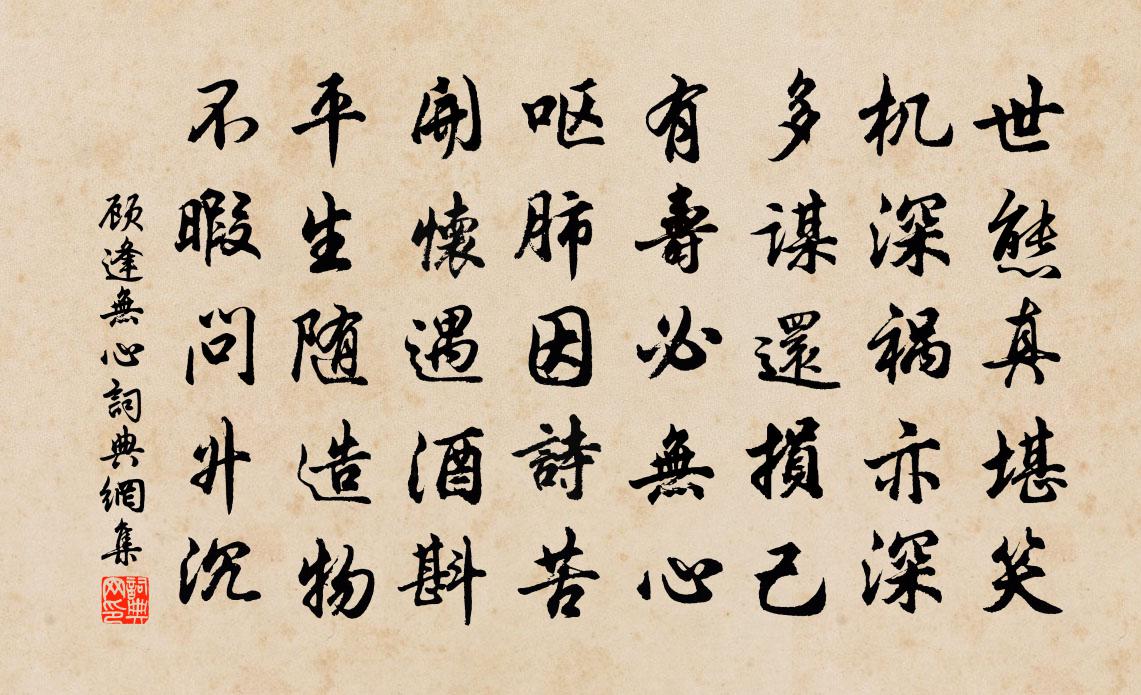 世態真堪笑
机深祸亦深
多謀還損己
有壽必無心
呕肺因詩苦
開懷遇酒斟
平生随造物
不暇問升沉
顾逢無心詞典網集
詞典网印